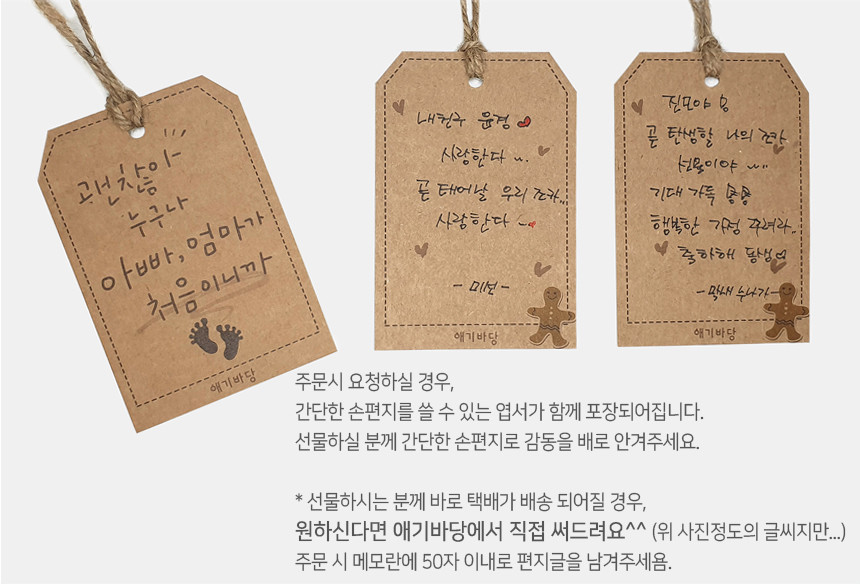 괜찮아
누구나
아빠, 엄마가
처음이니까
애기바당
내친구 윤경
사랑한다
곧 태어날 우리 조카..
사랑한다
- 미보 -
애기바당
진모야
곧 탄생할 나의 조카
선물이야
기대 가득
행복한 가정 꾸려라..
축하해 동생
- 막내 누나가 -
애기바당
주문시 요청하실 경우,
간단한 손편지를 쓸 수 있는 엽서가 함께 포장되어집니다.
선물하실 분께 간단한 손편지로 감동을 배로 안겨주세요.
* 선물하시는 분께 바로 택배가 배송 되어질 경우,
원하신다면 애기바당에서 직접 써드려요^^ (위 사진정도의 글씨지만...)
주문 시 메모란에 50자 이내로 편지글을 남겨주세욤.